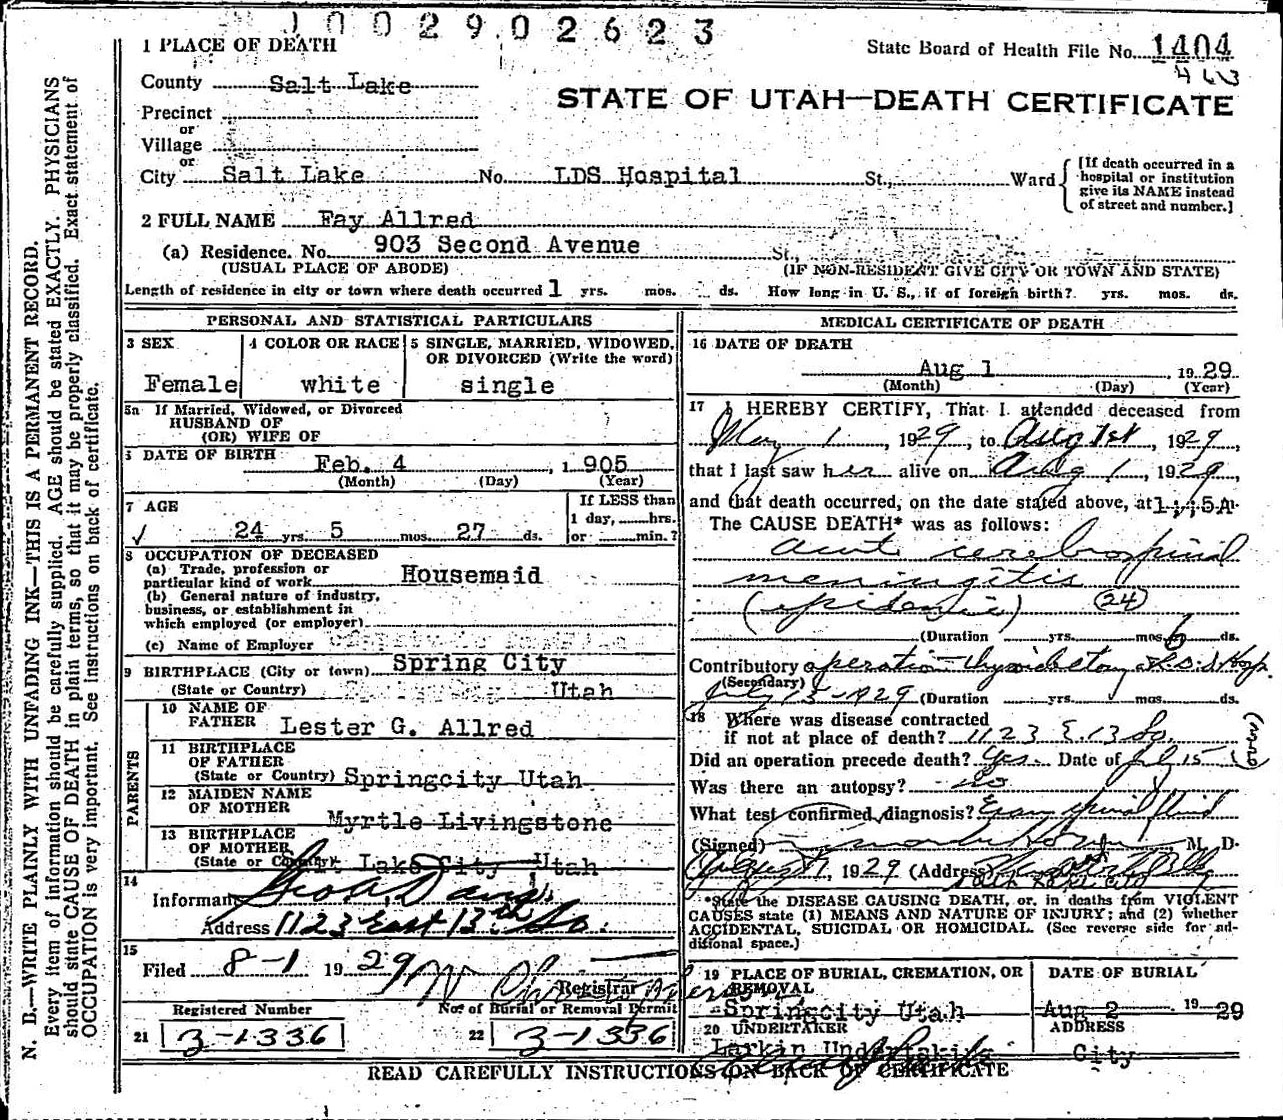 1002902623
State Board of Health File No. 1404
STATE OF UTAH—DEATH CERTIFICATE
1 PLACE OF DEATH
County Salt Lake
Precinct
or
Village
or
City Salt Lake No. LDS Hospital St., Ward
[If death occurred in a hospital or institution give its NAME instead of street and number.]
2 FULL NAME Fay Allred
(a) Residence. No. 903 Second Avenue St.,
(USUAL PLACE OF ABODE) (IF NON-RESIDENT GIVE CITY OR TOWN AND STATE)
Length of residence in city or town where death occurred 1 yrs. mos. ds. How long in U. S., if of foreign birth? yrs. mos. ds.
PERSONAL AND STATISTICAL PARTICULARS
3 SEX
Female
4 COLOR OR RACE
white
5 SINGLE, MARRIED, WIDOWED, OR DIVORCED (Write the word)
single
5a If Married, Widowed, or Divorced
HUSBAND OF
(OR) WIFE OF
DATE OF BIRTH
Feb. 4, 1905
(Month) (Day) (Year)
7 AGE
24 yrs. 5 mos. 27 ds.
If LESS than
1 day, hrs.
or min.?
8 OCCUPATION OF DECEASED
(a) Trade, profession or
particular kind of work Housemaid
(b) General nature of industry,
business, or establishment in
which employed (or employer)
(c) Name of Employer
9 BIRTHPLACE (City or town) Spring City
(State or Country) Utah
PARENTS
10 NAME OF
FATHER Lester G. Allred
11 BIRTHPLACE
OF FATHER
(State or Country) Springcity Utah
12 MAIDEN NAME
OF MOTHER
Myrtle Livingstone
13 BIRTHPLACE
OF MOTHER
(State or Country) Salt Lake City Utah
14
Informant Geo. A. Davis
Address 1123 East 13th So.
15
Filed 8-1 1929
Registrar
Registered Number
21 3-1336
No. of Burial or Removal Permit
22 3-1336
MEDICAL CERTIFICATE OF DEATH
16 DATE OF DEATH
Aug 1, 1929
(Month) (Day) (Year)
17 I HEREBY CERTIFY, That I attended deceased from
May 1, 1929, to Aug 1st, 1929,
that I last saw her alive on Aug 1, 1929,
and that death occurred, on the date stated above, at
The CAUSE DEATH* was as follows:
acute cerebrospinal
meningitis
(epidemic) (24)
(Duration yrs. mos. 6 ds.
Contributory operation—thyroidectomy L.D.S. Hosp.
(Secondary)
July 15-1929 (Duration yrs. mos. ds.
18 Where was disease contracted
if not at place of death? 1123 E. 13 So.
Did an operation precede death? Yes Date of July 15
Was there an autopsy? No
What test confirmed diagnosis? Exam spinal fluid
(Signed) M. D.
August 1, 1929 (Address)
Salt Lake City
*State the DISEASE CAUSING DEATH, or, in deaths from VIOLENT
CAUSES state (1) MEANS AND NATURE OF INJURY; and (2) whether
ACCIDENTAL, SUICIDAL OR HOMICIDAL. (See reverse side for additional space.)
19 PLACE OF BURIAL, CREMATION, OR
REMOVAL
Springcity Utah
DATE OF BURIAL
Aug 2 1929
20 UNDERTAKER
Larkin Undertaking
ADDRESS
City
READ CAREFULLY INSTRUCTIONS ON BACK OF CERTIFICATE
N. B.—WRITE PLAINLY WITH UNFADING INK—THIS IS A PERMANENT RECORD.
Every item of information should be carefully supplied. AGE should be stated EXACTLY. PHYSICIANS
should state CAUSE OF DEATH in plain terms, so that it may be properly classified. Exact statement of
OCCUPATION is very important. See instructions on back of certificate.